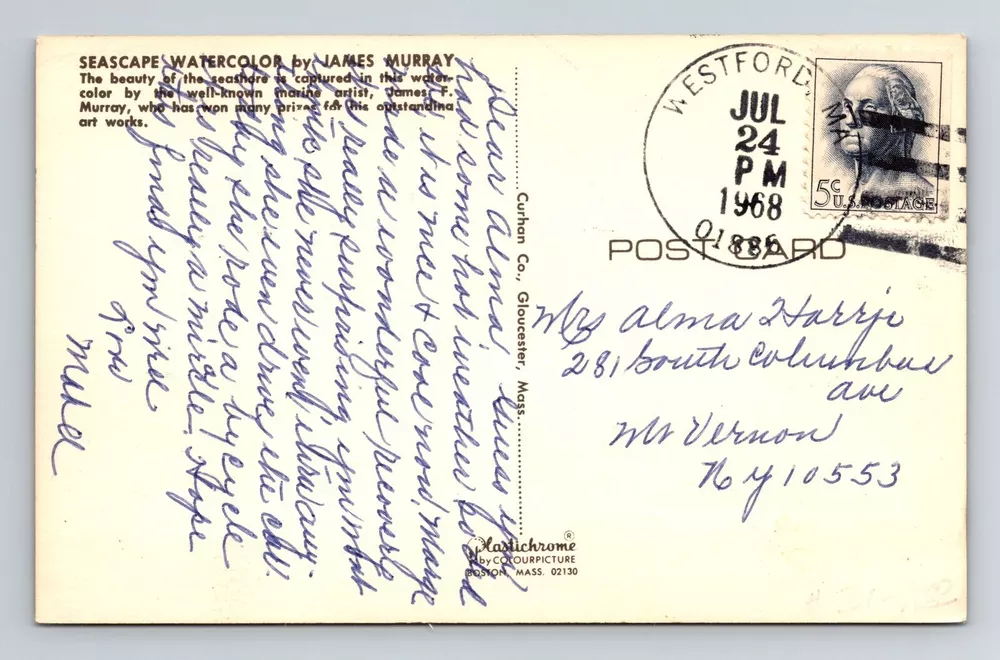 SEASCAPE WATERCOLOR by JAMES MURRAY
The beauty of the seashore is captured in this water-
color by the well-known marine artist, James F.
Murray, who has won many prizes for his outstanding
art works.
Dear Alma, Guess you
had some hot weather too and
it is nice & cool now, Marge
made a wonderful recovery
really surprising, if
she never went
she even drives the car
she rode a bycycle
really a miracle! Hope
Love
Curhan Co., Gloucester, Mass.
Plastichrome ®
by COLOURPICTURE
BOSTON, MASS. 02130
WESTFORD MA
JUL
24
PM
1968
01886
5¢
U.S. POSTAGE
POST CARD
Mrs Alma
281 South Columbus
Ave
Mt Vernon
NY 10553